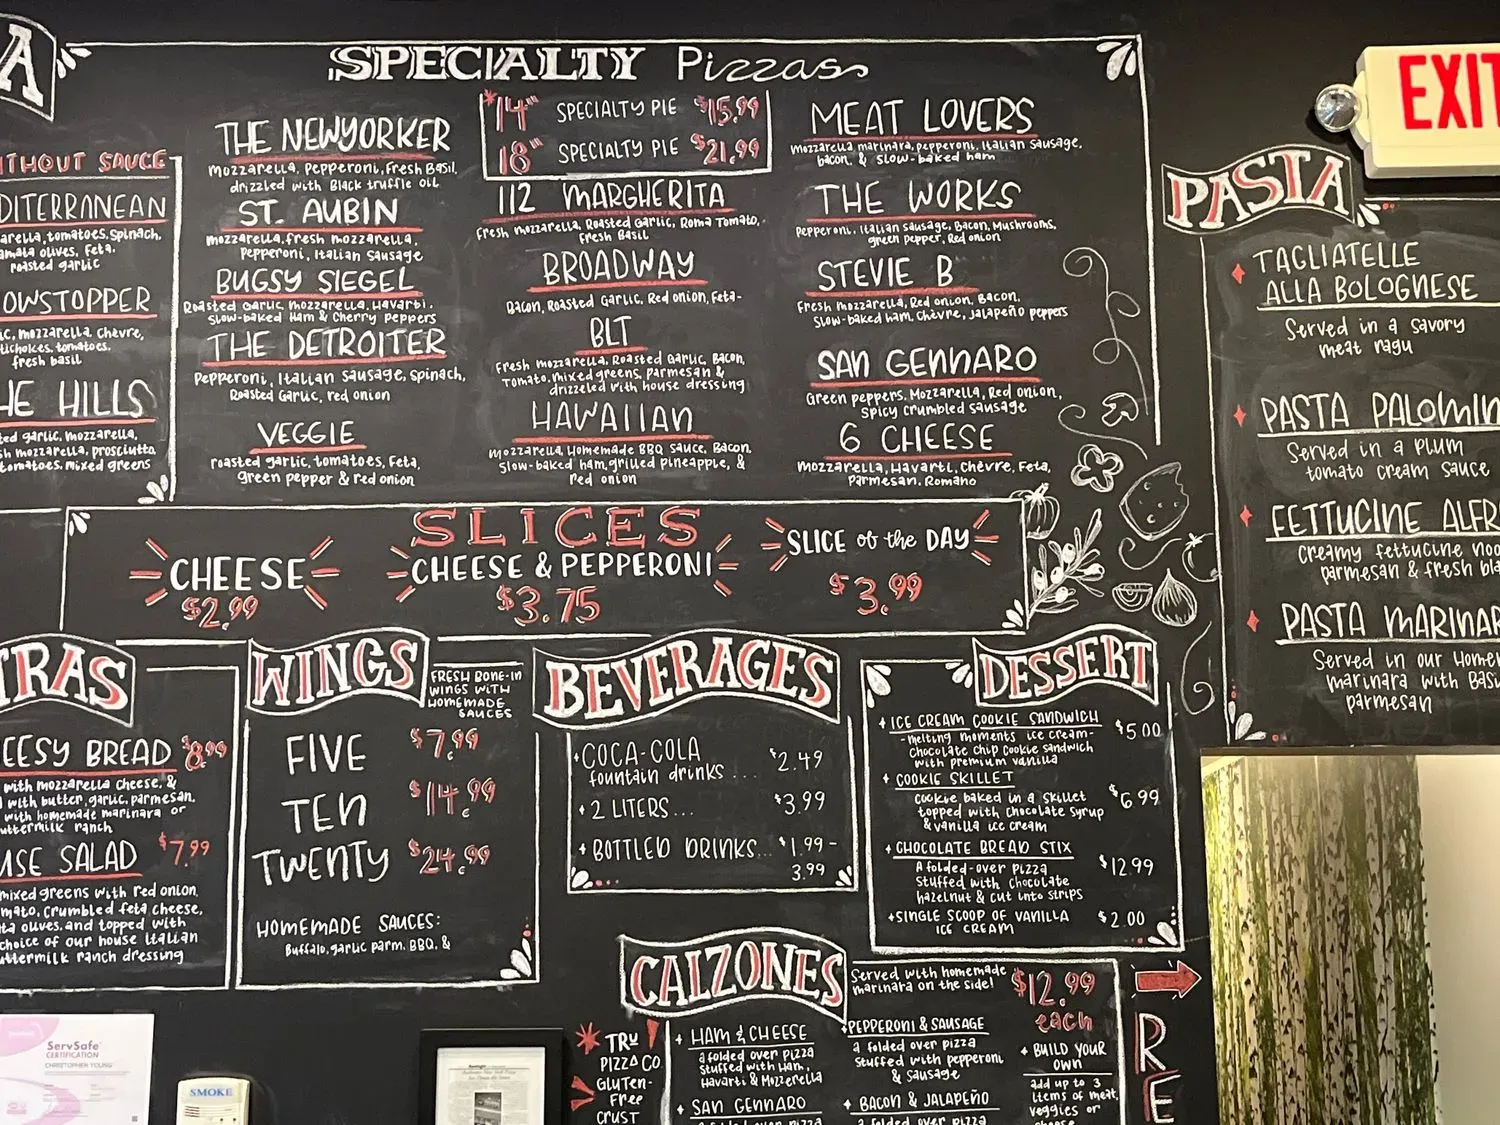 A
SPECIALTY Pizzas
*14" SPECIALTY PIE $15.99
18" SPECIALTY PIE $21.99
ITHOUT SAUCE
DITERRANEAN
arella, tomatoes, Spinach,
amata olives, feta,
roasted garlic
OWSTOPPER
ic, mozzarella, chèvre,
tichokes, tomatoes,
fresh basil
HE HILLS
ted garlic, mozzarella,
sh mozzarella, prosciutto,
tomatoes, mixed greens
THE NEWYORKER
Mozzarella, Pepperoni, Fresh Basil,
drizzled with Black truffle oil
ST. AUBIN
Mozzarella, fresh mozzarella,
Pepperoni, Italian Sausage
BUGSY SIEGEL
Roasted Garlic, mozzarella, Havarti,
Slow-baked Ham & Cherry Peppers
THE DETROITER
Pepperoni, Italian Sausage, Spinach,
Roasted Garlic, red onion
VEGGIE
roasted garlic, tomatoes, Feta,
green pepper & red onion
112 MARGHERITA
Fresh mozzarella, Roasted Garlic, Roma Tomato,
Fresh Basil
BROADWAY
Bacon, Roasted Garlic, Red onion, Feta-
BLT
Fresh mozzarella, Roasted Garlic, Bacon,
Tomato, mixed greens, parmesan &
drizzled with house dressing
HAWAIIAN
Mozzarella, Homemade BBQ Sauce, Bacon,
Slow-baked ham, grilled pineapple, &
red onion
MEAT LOVERS
Mozzarella marinara, pepperoni, Italian Sausage,
bacon, & slow-baked ham
THE WORKS
Pepperoni, Italian sausage, Bacon, Mushrooms,
green pepper, Red onion
STEVIE B
Fresh mozzarella, Red onion, Bacon,
Slow-baked ham, Chèvre, Jalapeño peppers
SAN GENNARO
Green peppers, Mozzarella, Red onion,
Spicy crumbled sausage
6 CHEESE
Mozzarella, Havarti, Chèvre, Feta,
Parmesan, Romano
EXIT
PASTA
TAGLIATELLE
ALLA BOLOGNESE
Served in a savory
meat ragu
PASTA PALOMIN
Served in a plum
tomato cream sauce
FETTUCINE ALFR
Creamy fettucine noo
parmesan & fresh bla
PASTA MARINAR
Served in our Homem
marinara with Basi
parmesan
SLICES
CHEESE
$2.99
CHEESE & PEPPERONI
$3.75
SLICE of the DAY
$3.99
TRAS
EESY BREAD $8.99
with mozzarella cheese, &
with butter, garlic, parmesan,
with homemade marinara or
uttermilk ranch
USE SALAD $7.99
mixed greens with red onion,
mato, crumbled feta cheese,
ta olives, and topped with
choice of our house Italian
uttermilk ranch dressing
WINGS
FRESH BONE-IN
WINGS WITH
HOMEMADE
SAUCES
FIVE $7.99
TEN $14.99
TWENTY $24.99
HOMEMADE SAUCES:
Buffalo, garlic parm, BBQ, &
BEVERAGES
COCA-COLA
fountain drinks .... $2.49
2 LITERS... $3.99
BOTTLED DRINKS... $1.99-
3.99
DESSERT
ICE CREAM COOKIE SANDWICH $5.00
-melting moments ice cream-
chocolate chip cookie sandwich
with premium vanilla
COOKIE SKILLET
cookie baked in a skillet $6.99
topped with chocolate syrup
& vanilla ice cream
CHOCOLATE BREAD STIX
A folded-over pizza $12.99
Stuffed with chocolate
hazelnut & cut into strips
SINGLE SCOOP OF VANILLA $2.00
ICE CREAM
CALZONES
Served with homemade
marinara on the side!
$12.99
each
HAM & CHEESE
a folded over pizza
stuffed with Ham,
Havarti & Mozzerella
SAN GENNARO
PEPPERONI & SAUSAGE
a folded over pizza
stuffed with pepperoni
& sausage
BACON & JALAPEÑO
a folded over pizza
BUILD YOUR
OWN
add up to 3
items of meat,
veggies or
TRU
PIZZA CO.
GLUTEN-
Free
CRUST
RE
ServSafe
CERTIFICATION
CHRISTOPHER YOUNG
SMOKE